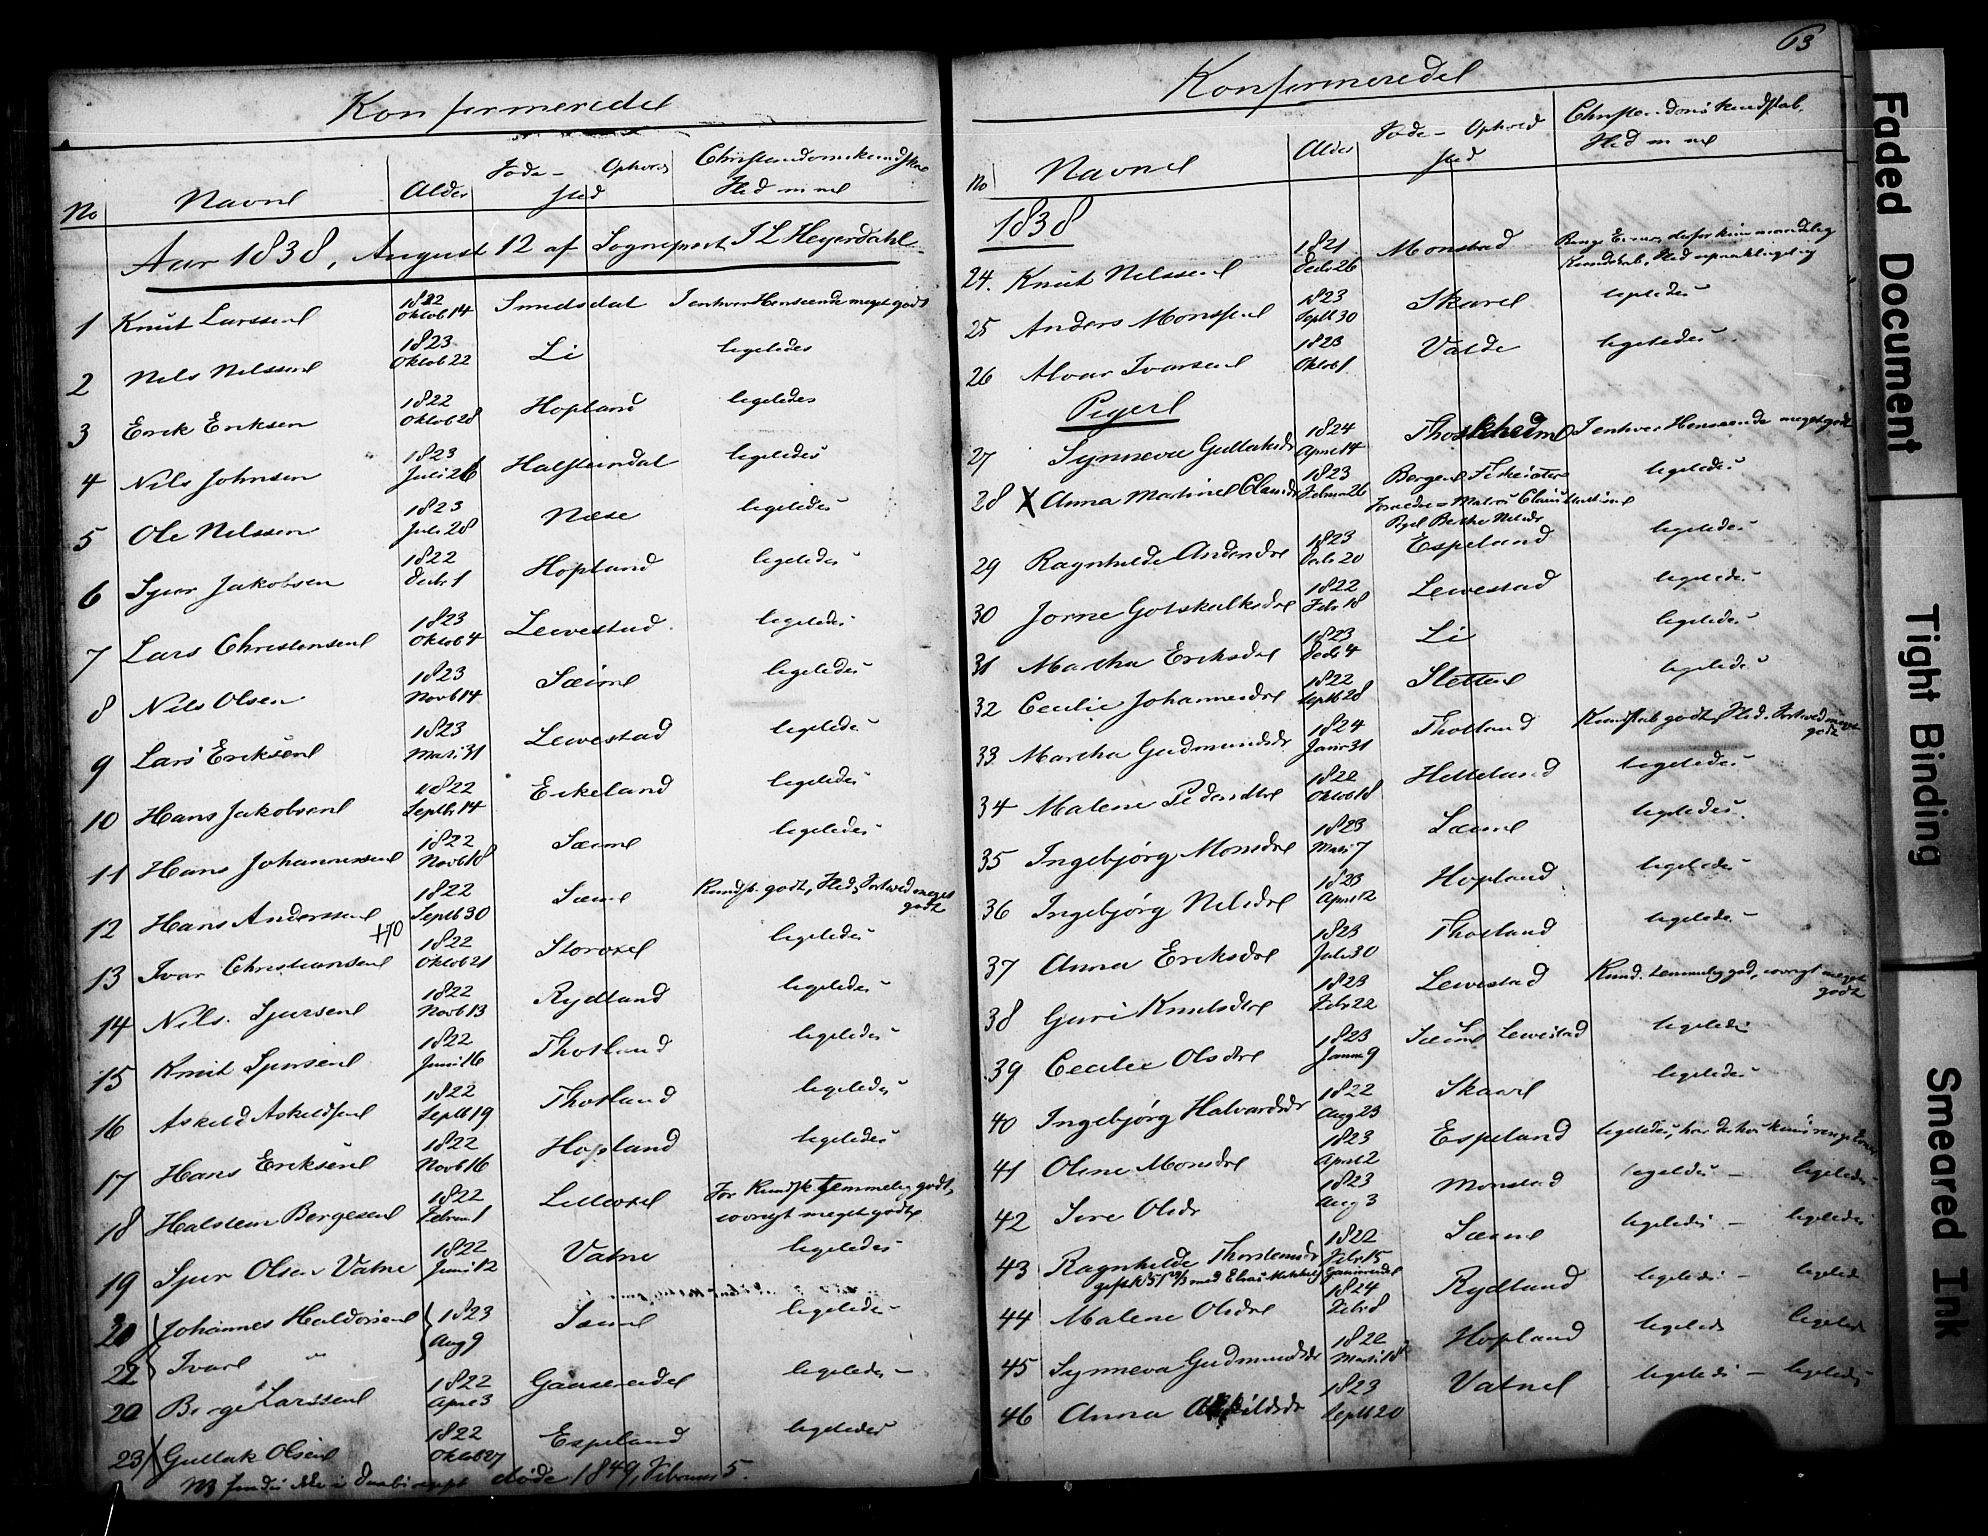 63
Konfirmerede
No Navne Alder Føde- Ophold sted Christendomskundskab
Aar 1838, August 12 af Sogneprest I L Heyerdahl
1 Knut Larssen 1822 Oktob 14 Smedsdal I enhver Henseende meget godt
2 Nels Nelssen 1823 Oktob 22 Li ligeledes
3 Erik Eriksen 1822 Oktob 28 Hopland ligeledes
4 Nils Johnsen 1823 Juli 26 Halsteindal ligeledes
5 Ole Nelssen 1823 Juli 28 Næse ligeledes
6 Sjur Jakobsen 1822 Decbr 1 Hopland ligeledes
7 Lars Christensen 1823 Oktob 4 Levestad ligeledes
8 Nils Olsen 1823 Novb 14 Sæime ligeledes
9 Lars Eriksen 1823 Marti 31 Levestad ligeledes
10 Hans Jakobsen 1822 Septb 14 Eikeland ligeledes
11 Hans Johannessen 1822 Novb 18 Sæime ligeledes
12 Hans Anderssen 1822 Septb 30 Sæime Kundsk. godt, Hed. Forhved meget godt
13 Ivar Christiansen 1822 Oktob 21 Storoxel ligeledes
14 Nils Sjursen 1822 Novb 13 Rydland ligeledes
15 Knut Sjursen 1822 Juni 16 Thotland ligeledes
16 Askeld Askeldsen 1822 Septb 19 Thotland ligeledes
17 Hans Eriksen 1822 Novb 16 Hopland ligeledes
18 Halsten Bergesen 1822 Februar 1 Lilleoxel For Kundsk. temmelig godt, iøvrigt meget godt
19 Sjur Olsen Vatne 1822 Juni 12 Vatne ligeledes
20 Johannes Haldorsen 1823 Aug 9 Sæime ligeledes
22 Ivar "
20 Berge Larssen 1822 April 3 Gausereidet ligeledes
23 Gullak Olsen 1822 Oktob 27 Espeland ligeledes
døde 1849, Februar 5.
Konfirmerede
No Navne Alder Føde- Ophold sted Christendomskundskab
1838
24. Knut Nelssen 1821 Decbr 26 Monstad Ringe Evner, derfor kun maadelig Kundskab,
25 Anders Monssen 1823 Septb 30 Skare ligeledes
26 Alvar Ivarsen 1823 Oktob 1 Valde ligeledes
Piger
27 Synneva Gullaksdr 1824 April 14 I enhver Henseende meget godt
28 X Anna Martine Clausdr 1823 Februar 26 Bergen ligeledes
Forældre Matros Claus
Pige Berthe Nilsdr
29 Ragnhilde Andersdr 1823 Decbr 20 Espeland ligeledes
30 Jorne Gotskalksdr 1822 Febr 18 Levestad ligeledes
31 Martha Eriksdr 1823 Decbr 4 Li ligeledes
32 Cecilie Johannesdr 1822 Septb 28 Slette ligeledes
33 Martha Gudmundsdr 1824 Januar 31 Thotland Kundskab godt, Hed. Forhved meget godt
34 Malene Pedersdtr 1822 Oktob 18 Helleland ligeledes
35 Ingebjørg Monsdr 1823 Marti 7 Sæime ligeledes
36 Ingebjørg Nelsdr 1823 April 12 Hopland ligeledes
37 Anna Eriksdr 1823 Juli 30 Thotland ligeledes
38 Guri Knutsdtr 1823 Febr 22 Levestad Kund. temmelig god, iøvrigt meget godt
39 Cecilie Olsdtr 1823 Januar 9 Sæime Levestad ligeledes
40 Ingebjørg Halvardsdr 1822 Aug 23 Skare ligeledes
41 Oline Monsdr 1823 April 2 Espeland ligeledes, har dertil kun ringe Evner
42 Sire Olsdr 1823 Aug 3 Monstad ligeledes — ligeledes
43 Ragnhilde Thorstensdr 1822 Febr 15 Sæime ligeledes — ligeledes
44 Malene Olsdr 1824 Febr 8 Rydland ligeledes — ligeledes
45 Synneva Gudmundsdr 1822 Marti 18 Hopland ligeledes ligeledes
46 Anna Askildsdr 1823 Septb 20 Vatne ligeledes — ligeledes
Faded Document
Tight Binding
Smeared Ink